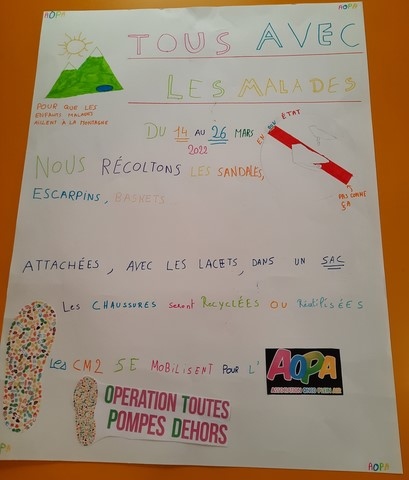 AOPA
AOPA
TOUS AVEC
LES MALADES
POUR QUE LES
ENFANTS MALADES
AILLENT À LA MONTAGNE
DU 14 AU 26 MARS
2022
EN BON ETAT
NOUS RÉCOLTONS LES SANDALES,
ESCARPINS, BASKETS
PAS COMME
ÇA
ATTACHÉES, AVEC LES LACETS, DANS UN SAC
Les CHAUSSURES seront RecycLÉES OU RéutiliSÉES
Les CM2 SE MOBILISENT POUR L'
AOPA
OPERATION TOUTES
POMPES DEHORS
PA
AOPA